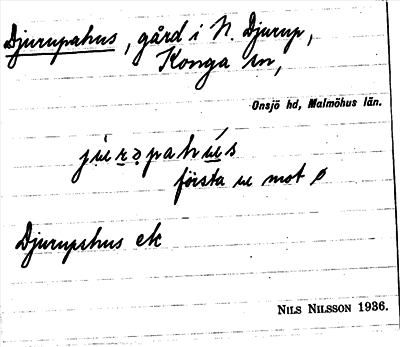 Djurupahus, gård i N. Djurup,
Konga sn,
Onsjö hd, Malmöhus län.
första u mot ø
Djurupshus ek
NILS NILSSON 1936.